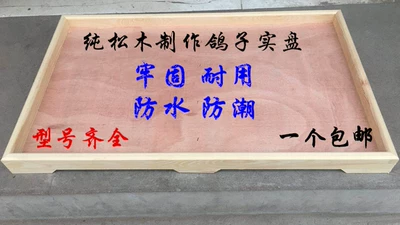 纯松木制作鸽子实盘
牢固 耐用
防水 防潮
型号齐全
一个包邮